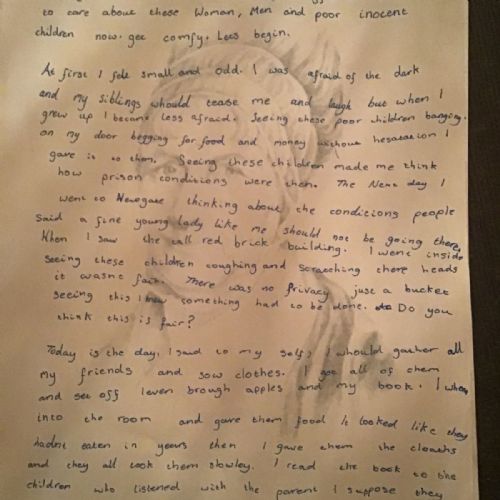 to care about these Woman, Men and poor inocent
children now. get comfy. Lets begin.
At first I felt small and odd. I was afraid of the dark
and my siblings whould tease me and laugh but when I
grew up I became less afraid. Seeing these poor children banging.
on my door begging for food and money without hesatation I
gave it to them. Seeing these children made me think
how prison conditions were then. The Next day I
went to Newgate thinking about the conditions people
said a fine young lady like me should not be going there.
When I saw the tall red brick building. I went inside
Seeing these children coughing and scratching there heads
it wasnt fair. There was no privacy just a bucket
seeing this I knew something had to be done. Do you
think this is fair?
Today is the day, I said to my self, I whould gather all
my friends and sow clothes. I got all of them
and set off leven brough apples and my book. I when
into the room and gave them food It looked like they
hadnt eaten in years then I gave them the cloaths
and they all took them slowley. I read the book to the
children who listened with the parent I suppose they